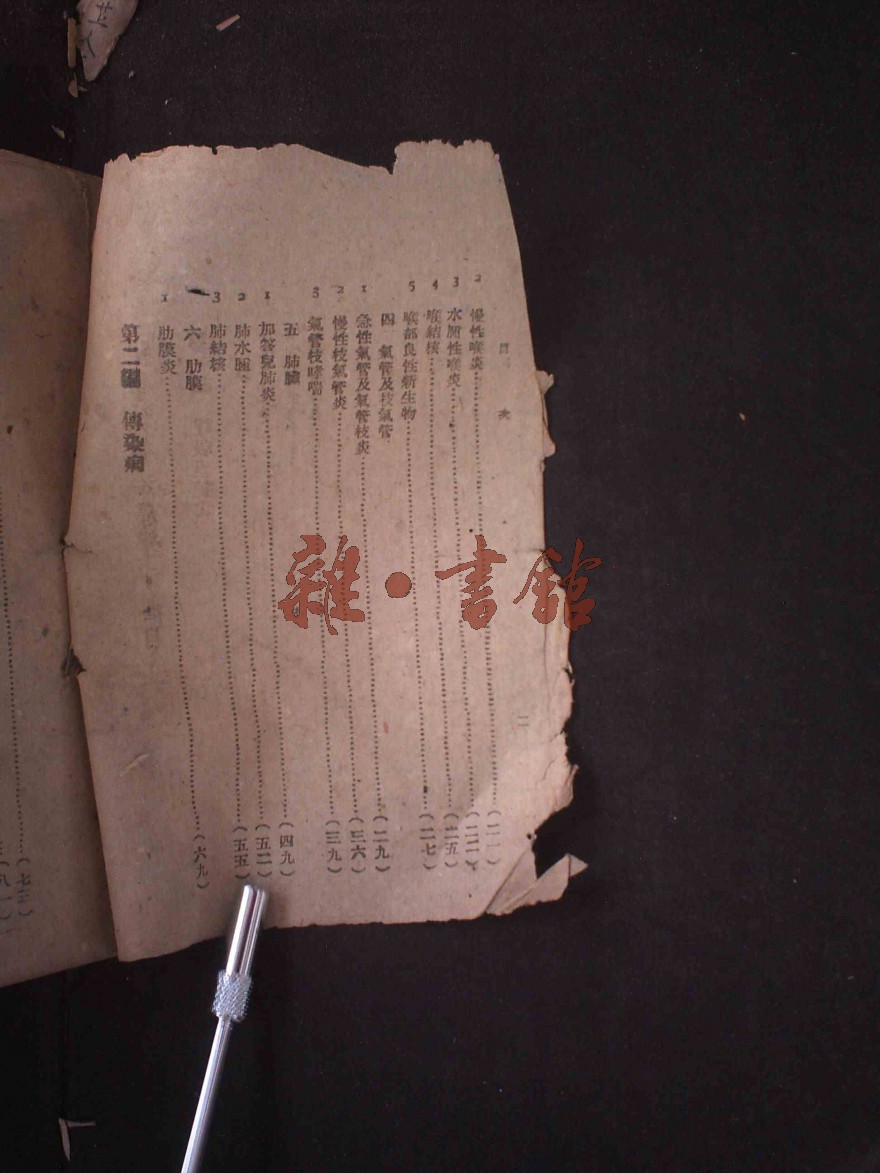 目次
二
2 慢性喉炎……(二一)
3 水腫性喉炎……(二二)
4 喉結核……(二五)
5 喉部良性新生物……(二七)
四 氣管及枝氣管
1 急性氣管及氣管枝炎……(二九)
2 慢性枝氣管炎……(三六)
3 氣管枝哮喘……(三九)
五 肺臟
1 加答兒肺炎……(四九)
2 肺水腫……(五二)
3 肺結核……(五五)
六 肋膜
1 肋膜炎……(六九)
第二編 傳染病
(七三)
雜·書館